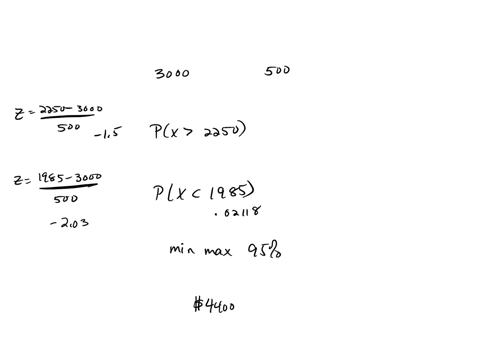 3000 500
Z = 2250 - 3000 / 500 -1.5
P(x > 2250)
Z = 1985 - 3000 / 500 -2.03
P(x < 1985)
.02118
min max 95%
$4400